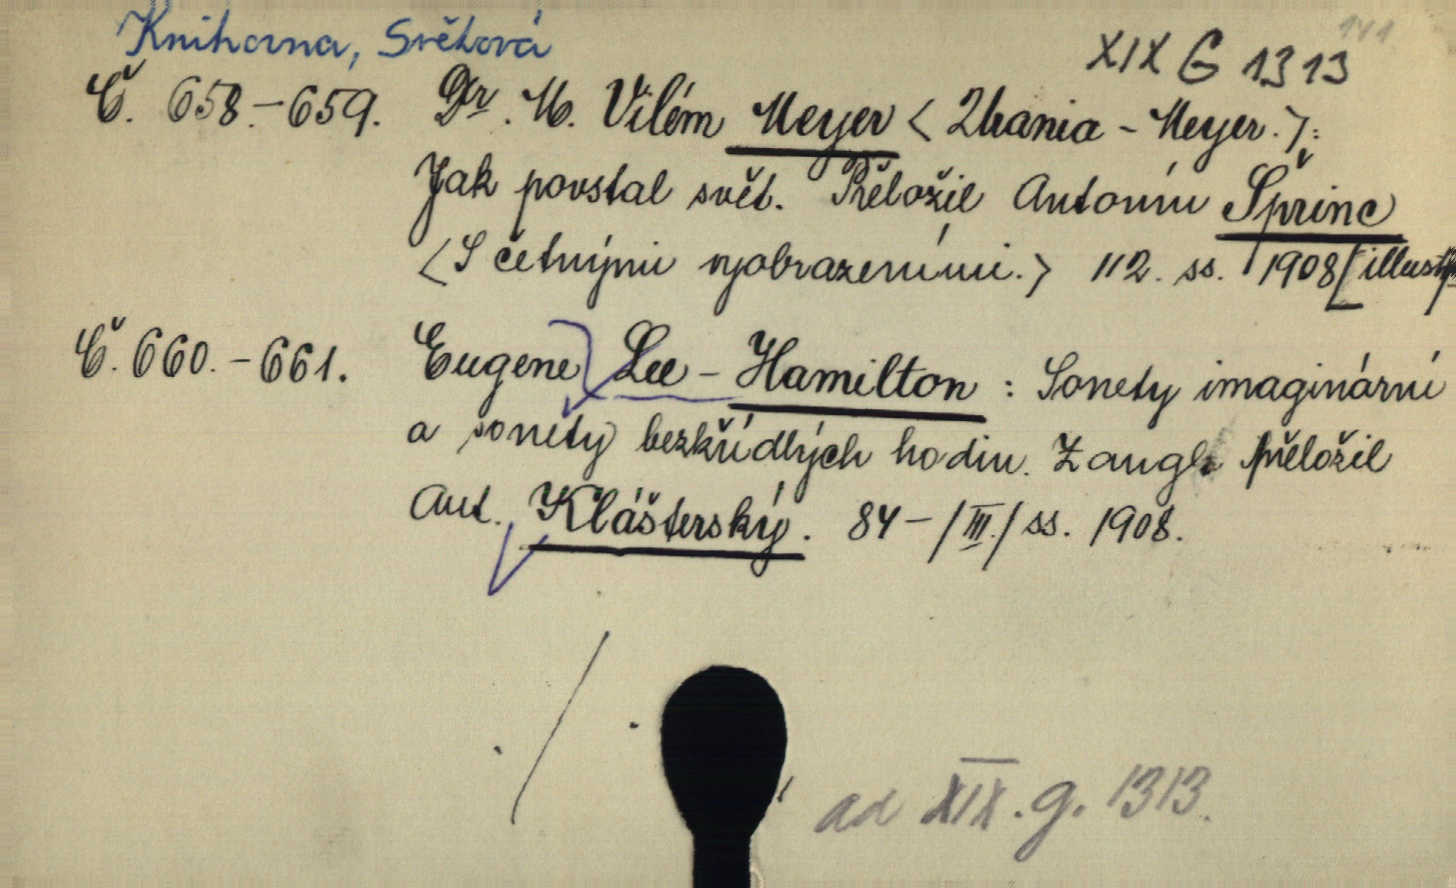 Knihovna, Světová
141
XIX G 1313
Č. 658.-659. Dr. M. Vilém Meyer <Urania - Meyer.>:
Jak povstal svět. Přeložil Antonín Šprinc
<S četnými vyobrazeními.> 112. ss. 1908 [illustr.
Č. 660.-661. Eugene Lee - Hamilton : Sonety imaginární
a sonety bezkřídlých hodin. Z angl. přeložil
Ant. Klášterský. 84-/III./ ss. 1908.
ad XIX. g. 1313.